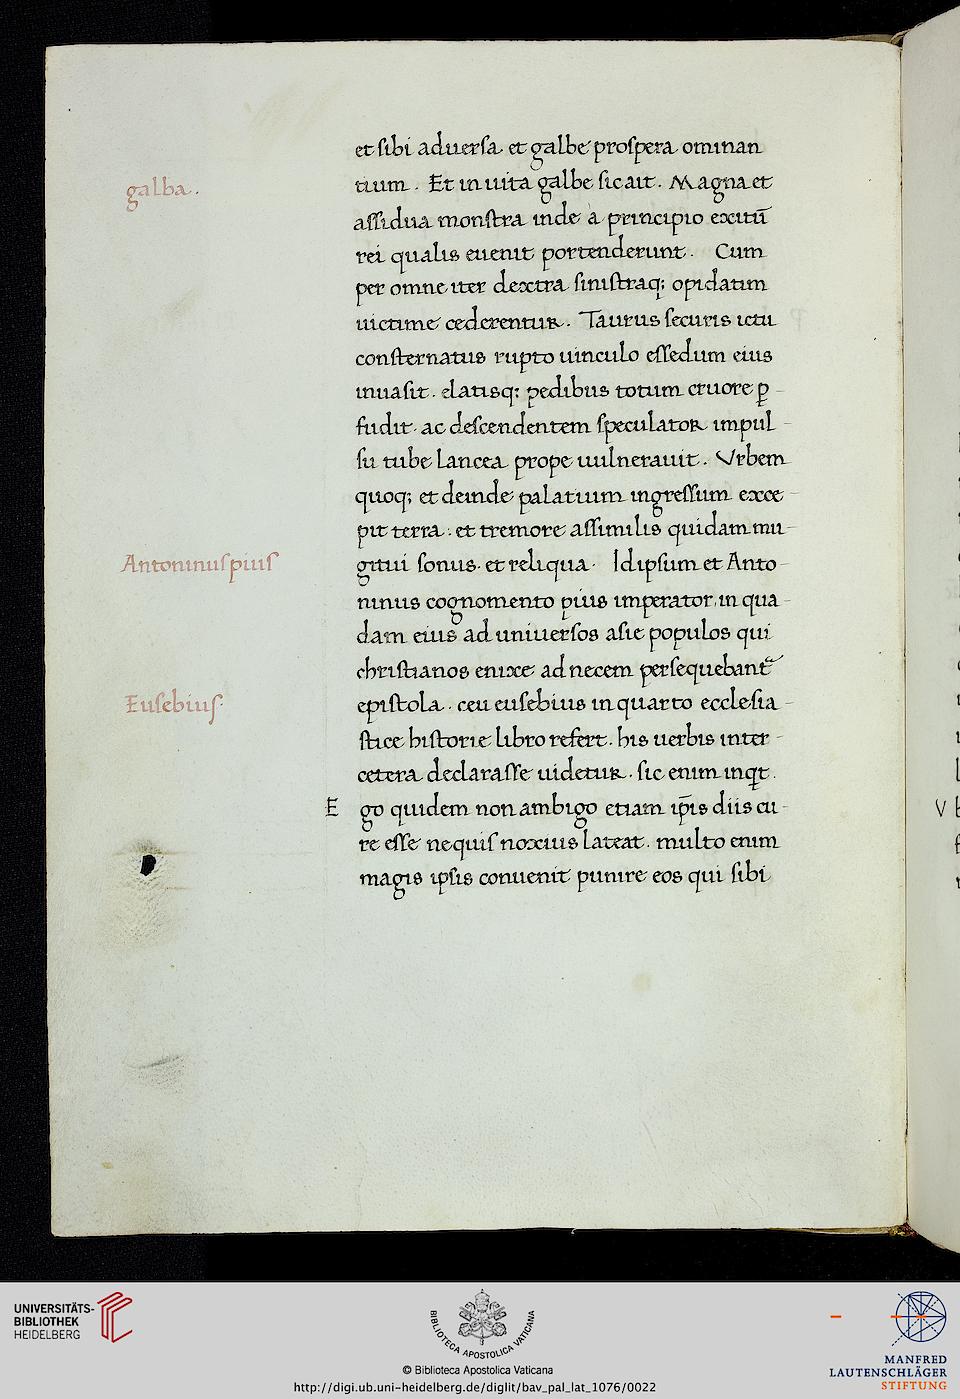 et sibi aduersa et galbe prospera ominan
galba.
tium. Et in uita galbe sic ait. Magna et
assidua monstra inde a principio exitū
rei qualis euenit portenderunt. Cum
per omne iter dextra sinistraq; opidatim
uictime cederentur. Taurus securis ictu
consternatus rupto uinculo essedum eius
inuasit. elatisq; pedibus totum cruore ꝑ-
fudit. ac descendentem speculator impul-
su tube lancea prope uulnerauit. Vrbem
quoq; et deinde palatium ingressum exce-
pit terra. et tremore assimilis quidam mu-
Antoninus pius
gitui sonus. et reliqua. Idipsum et Anto-
ninus cognomento pius imperator. in qua-
dam eius ad uniuersos asie populos qui
christianos enixe ad necem persequebant᷑
Eusebius.
epistola. ceu eusebius in quarto ecclesia-
stice historie libro refert. his uerbis inter-
cetera declarasse uidetur. sic enim inqt.
E go quidem non ambigo etiam ip̄is diis cu-
re esse nequis noxius lateat. multo enim
magis ipsis conuenit punire eos qui sibi
UNIVERSITÄTS-
BIBLIOTHEK
HEIDELBERG
BIBLIOTECA APOSTOLICA VATICANA
© Biblioteca Apostolica Vaticana
http://digi.ub.uni-heidelberg.de/diglit/bav_pal_lat_1076/0022
MANFRED
LAUTENSCHLÄGER
STIFTUNG